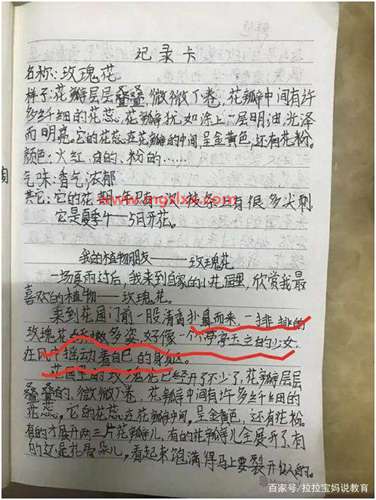 记录卡
名称：玫瑰花
样子：花瓣层层叠叠，微微丁卷，花瓣中间有许
多纤细的花蕊，花瓣犹如涂上一层明油，光泽
而明亮，它的花蕊在花瓣的中间，呈金黄色，还有花粉。
颜色：火红、白的、粉的……
气味：香气浓郁
其它：它的花期 年 一次 枝 有很多尖刺
它是 4—5月开花。
www.mgxlxx.com
我的植物朋友——玫瑰花
一场夏雨过后，我来到自家的小花园里，欣赏我最
喜欢的植物——玫瑰花。
来到花园门前一股清香扑鼻而来，一排排的
玫瑰花 多姿，好像一个个亭亭玉立的少女，
在风 摇动着自己的身
的玫瑰花已经开了不少了，花瓣层层
叠叠的，微微丁卷，花瓣中间有许多纤细的
花蕊，它的花蕊在花瓣中间，呈金黄色，还有花粉。
有的才展开两三片花瓣儿，有的花瓣儿全展开了，有
的 是花骨朵儿，看起来饱满得马上要裂开似的。
百家号/拉拉宝妈说教育